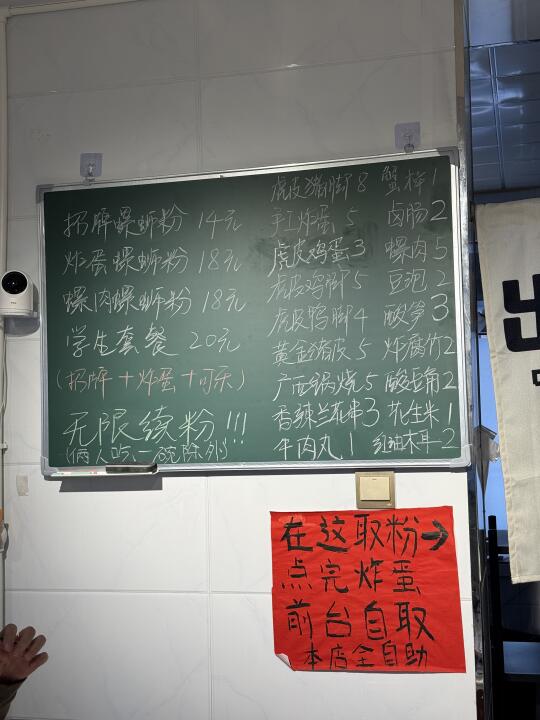 招牌螺蛳粉 14元
炸蛋螺蛳粉 18元
螺肉螺蛳粉 18元
学生套餐 20元
(招牌+炸蛋+可乐)
无限续粉!!!
(俩人吃一碗除外)
虎皮猪脚 8
手工炸蛋 5
虎皮鸡蛋 3
虎皮鸡脚 5
虎皮鸭脚 4
黄金猪皮 5
广西锅烧 5
香辣兰花串 3
牛肉丸 1
蟹棒 1
卤肠 2
螺肉 5
豆泡 2
酸笋 3
炸腐竹 2
酸豆角 2
花生米 1
红油木耳 2
在这取粉→
点完炸蛋
前台自取
本店全自助